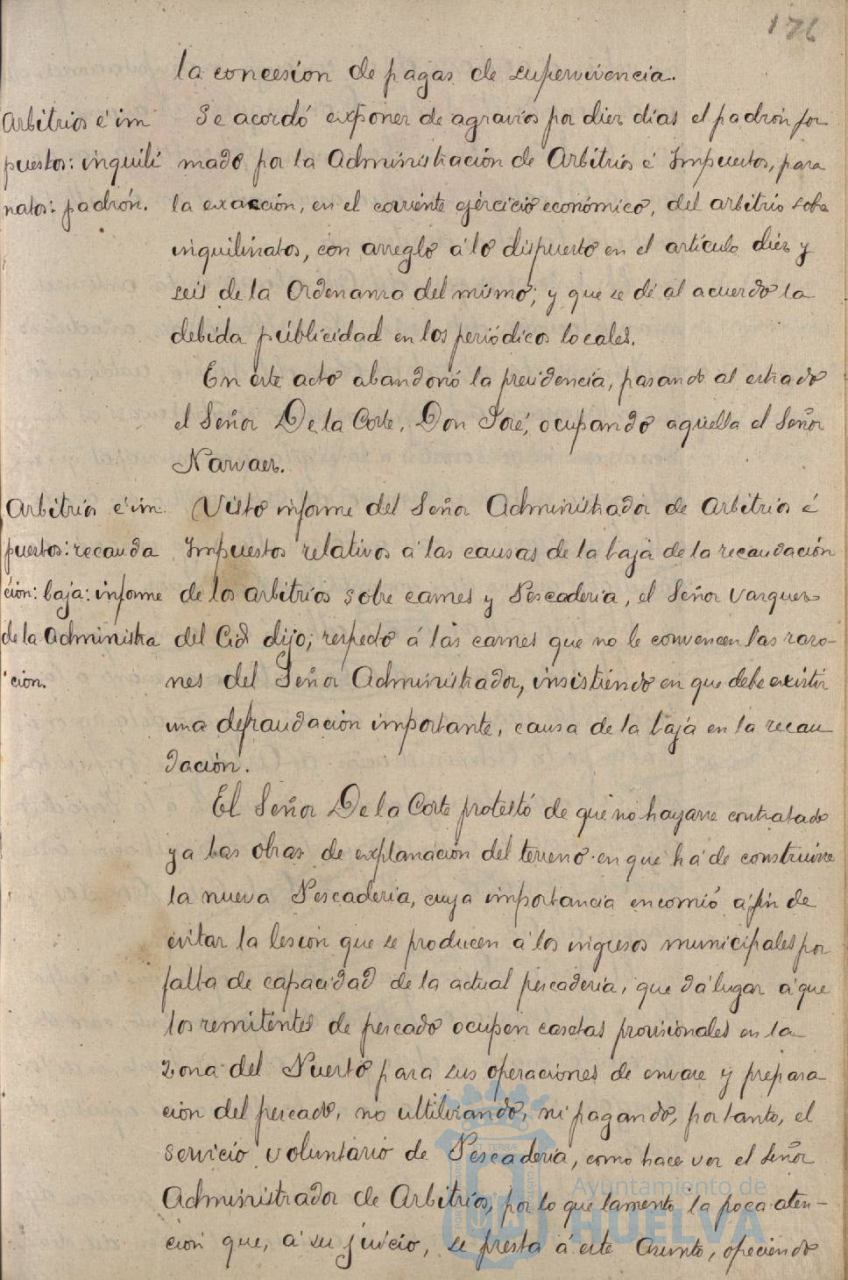 176
la concesion de pagas de supervivencia.
Arbitrios é im
puestos: inquili
natos: padrón.
Se acordó exponer de agravios por diez días el padrón for
mado por la Administración de Arbitrios é Impuestos, para
la exacción, en el corriente ejercicio económico, del arbitrio sobre
inquilinatos, con arreglo á lo dispuesto en el artículo diez y
seis de la Ordenanza del mismo; y que se dé al acuerdo la
debida publicidad en los periódicos locales.
En este acto abandonó la presidencia, pasando al estrado
el Señor De la Corte, Don José, ocupando aquella el Señor
Narvaez.
Arbitrios é im
puestos: recauda
ción: baja: informe
de la Administra
ción.
Visto informe del Señor Administrador de Arbitrios é
Impuestos relativos á las causas de la baja de la recaudación
de los arbitrios sobre carnes y Pescaderia, el Señor Vazquez
del Cid dijo; respecto á las carnes que no le convencen las razo-
nes del Señor Administrador, insistiendo en que debe existir
una defraudación importante, causa de la baja en la recau
dación.
El Señor De la Corte protestó de que no hayanse contratado
ya las obras de explanación del terreno en que há de construirse
la nueva Pescaderia, cuya importancia encomió á fin de
evitar la lesion que se producen á los ingresos municipales por
falta de capacidad de la actual pescaderia, que dá lugar á que
los remitentes de pescado ocupen casetas provisionales en la
zona del Puerto para sus operaciones de envase y prepara
ción del pescado, no ultilizando, ni pagando, por tanto, el
servicio voluntario de Pescaderia, como hace ver el Señor
Administrador de Arbitrios, por lo que lamentó la poca aten-
ción que, á su juicio, se presta á este asunto, ofreciendo
Ayuntamiento de
HUELVA